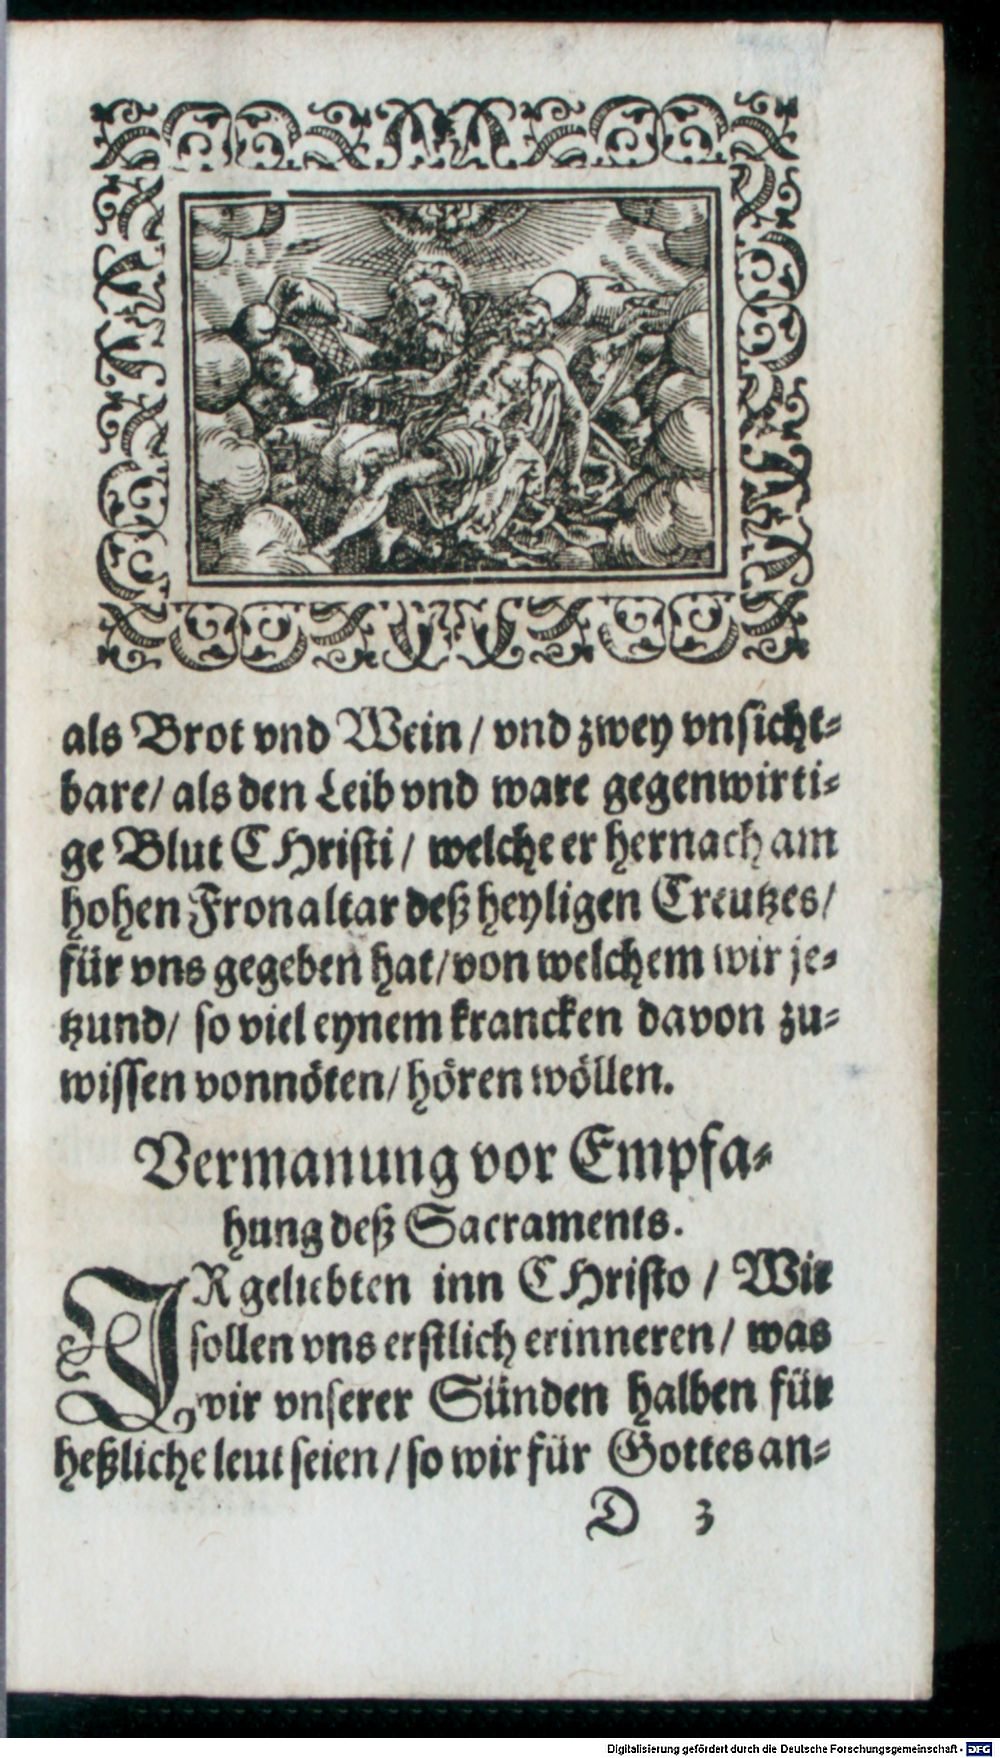 als Brot vnd Wein / vnd zwey vnsicht⸗
bare / als den Leib vnd ware gegenwirti⸗
ge Blut CHristi / welche er hernach am
hohen Fronaltar deß heyligen Creutzes /
für vns gegeben hat / von welchem wir je⸗
tzund / so viel eynem krancken davon zu⸗
wissen vonnöten / hören wöllen.
Vermanung vor Empfa⸗
hung deß Sacraments.
IR geliebten inn CHristo / Wir
sollen vns erstlich erinneren / was
wir vnserer Sünden halben für
heßliche leut seien / so wir für Gottes an⸗
D 3
Digitalisierung gefördert durch die Deutsche Forschungsgemeinschaft - DFG